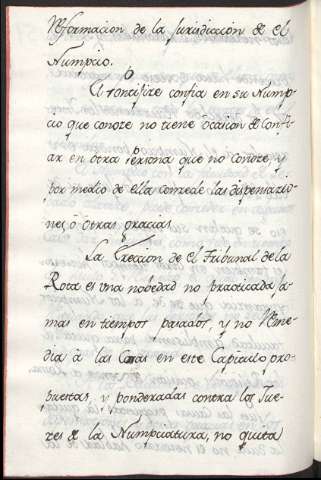 Reformacion de la Jurisdiccion de el
Numpcio.
El Pontifice confia en su Nump-
cio que conoze no tiene ocasion de confi-
ar en otra Persona que no conoze, y
por medio de ella concede las dispensazio-
nes, ô otras gracias.
La Ereccion de el Tribunal de la
Rota es una nobedad no practicada ja-
mas en tiempos pasados, y no Reme-
dia â las en este Capitulo pro-
puestas, y ponderadas contra los Jue-
zes de la Numpciatura, no quita